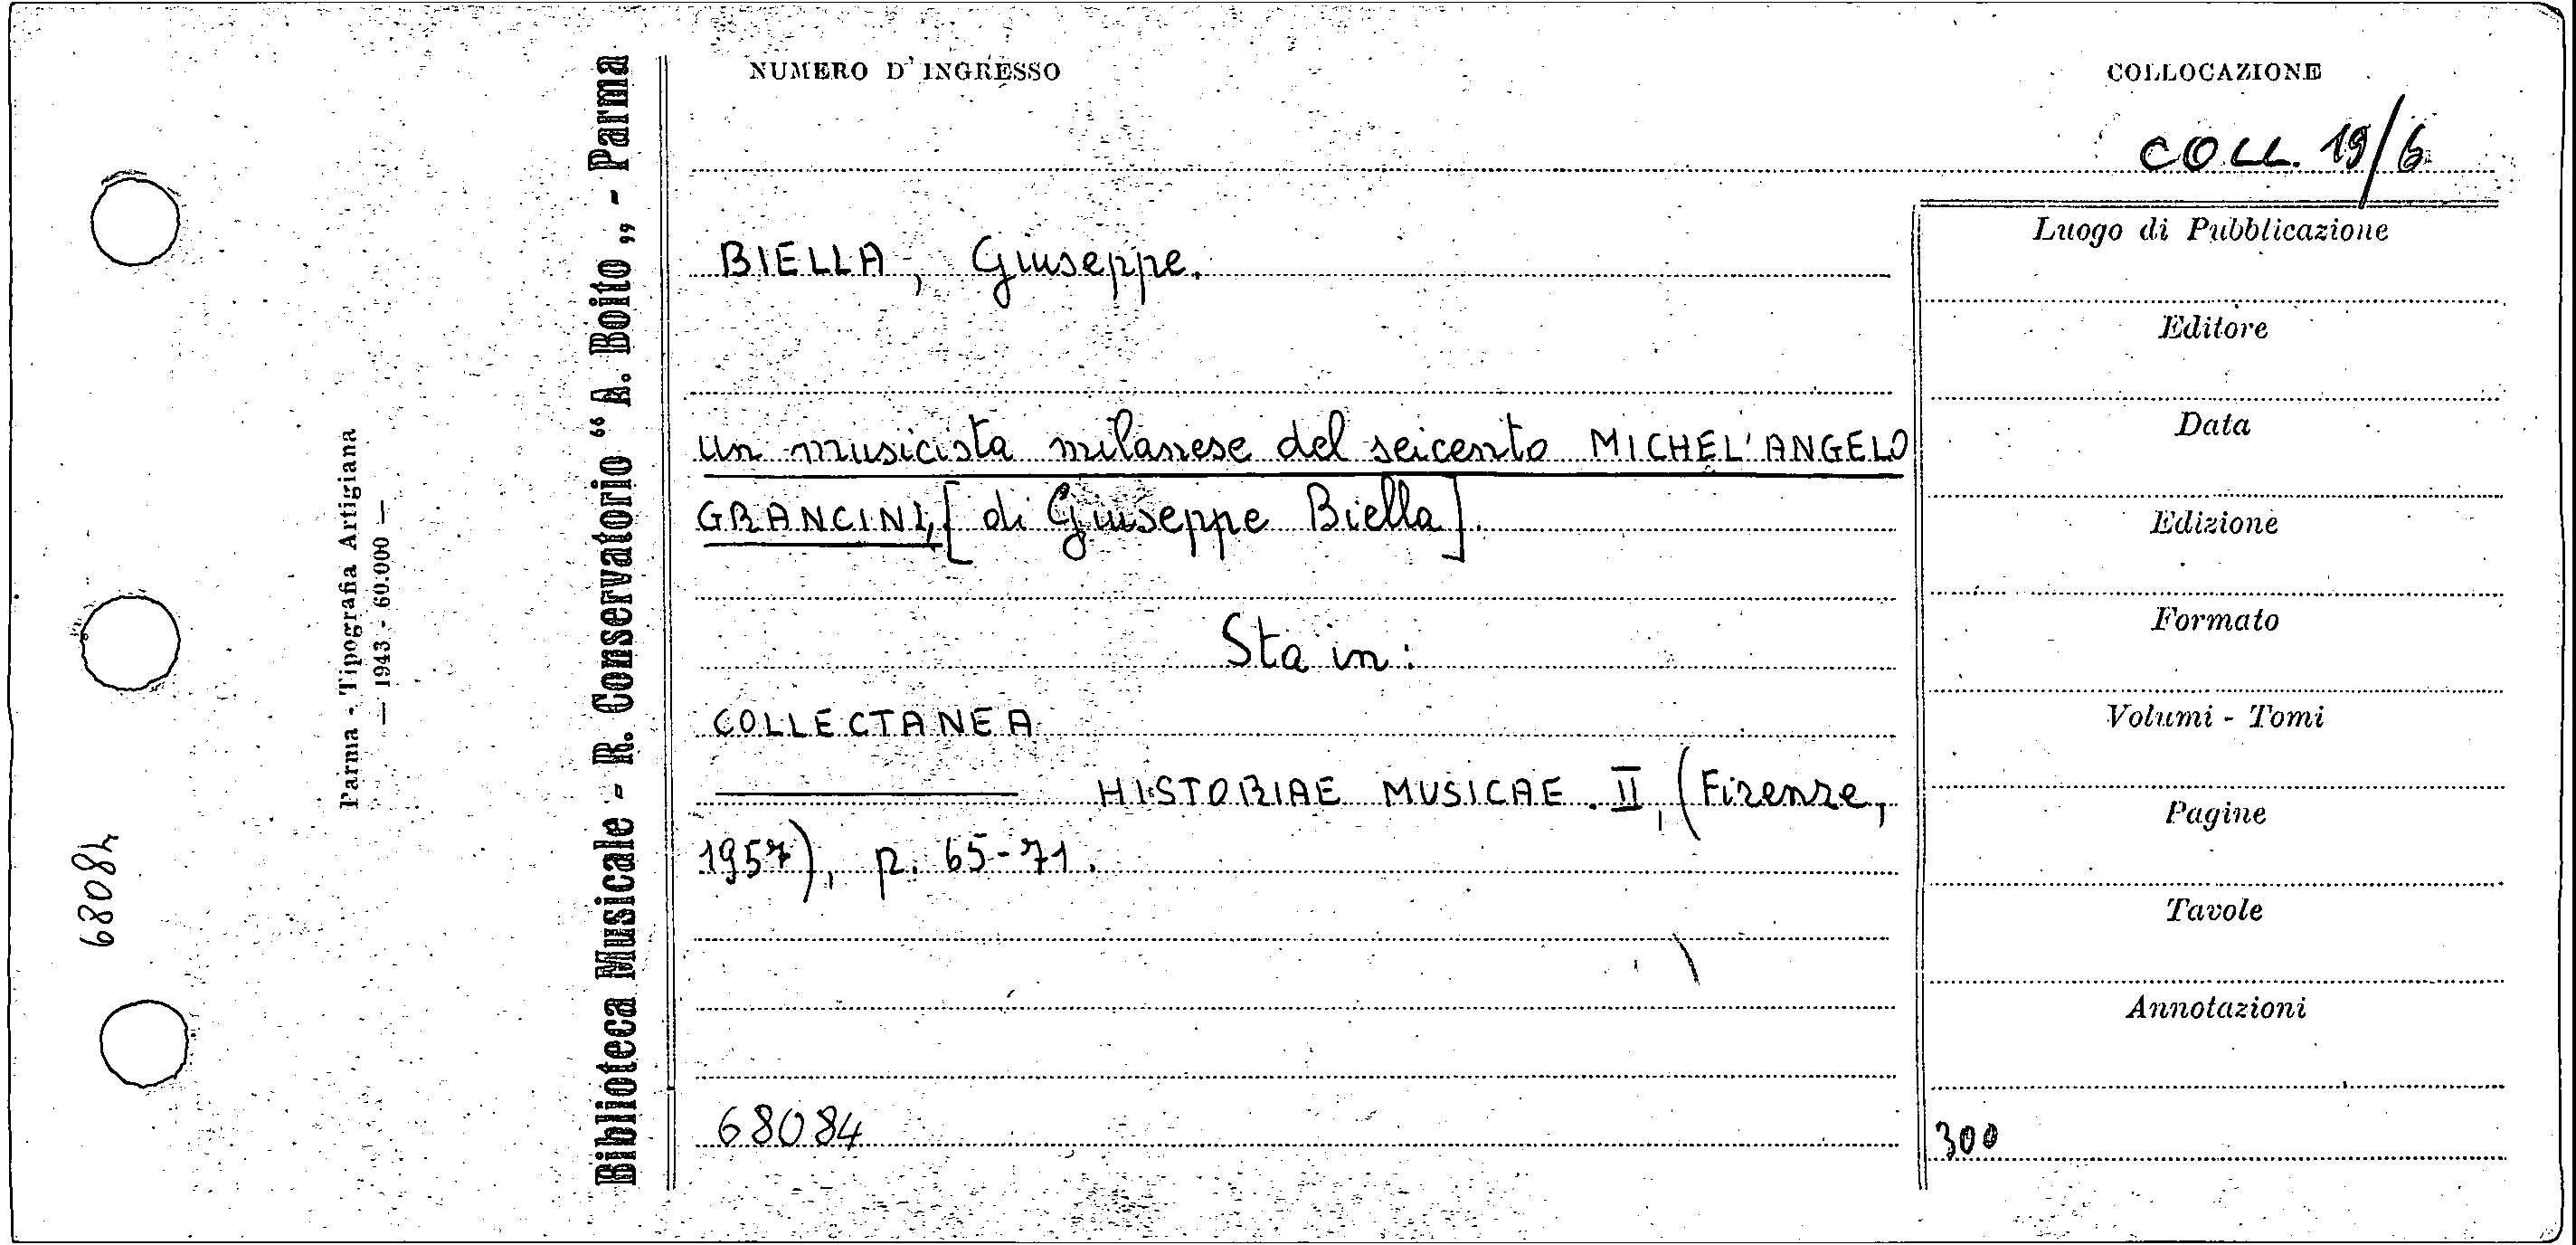 NUMERO D'INGRESSO
COLLOCAZIONE
COLL. 19/6
BIELLA, Giuseppe.
un musicista milanese del seicento MICHEL'ANGELO
GRANCINI, [di Giuseppe Biella].
Sta in:
COLLECTANEA
HISTORIAE MUSICAE. II, (Firenze,
1957), p. 65-71.
68084
Luogo di Pubblicazione
Editore
Data
Edizione
Formato
Volumi - Tomi
Pagine
Tavole
Annotazioni
300
Biblioteca Musicale - R. Conservatorio “A. Boito„ - Parma
Parma - Tipografia Artigiana
— 1943 - 60.000 —
68084